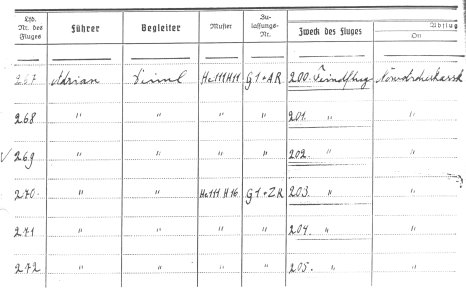 Lfd. Nr. des Fluges Führer Begleiter Muster Zulassungs-Nr. Zweck des Fluges Abflug Ort
267 Adrian He111H11 G1+AR 200. Feindflug Nowotscherkassk
268 " " " " 201. " "
✓ 269 " " " " 202. " "
270 " " He111 H16 G1+ZR 203. " "
271 " " " " 204. " "
272 " " " " 205. " "